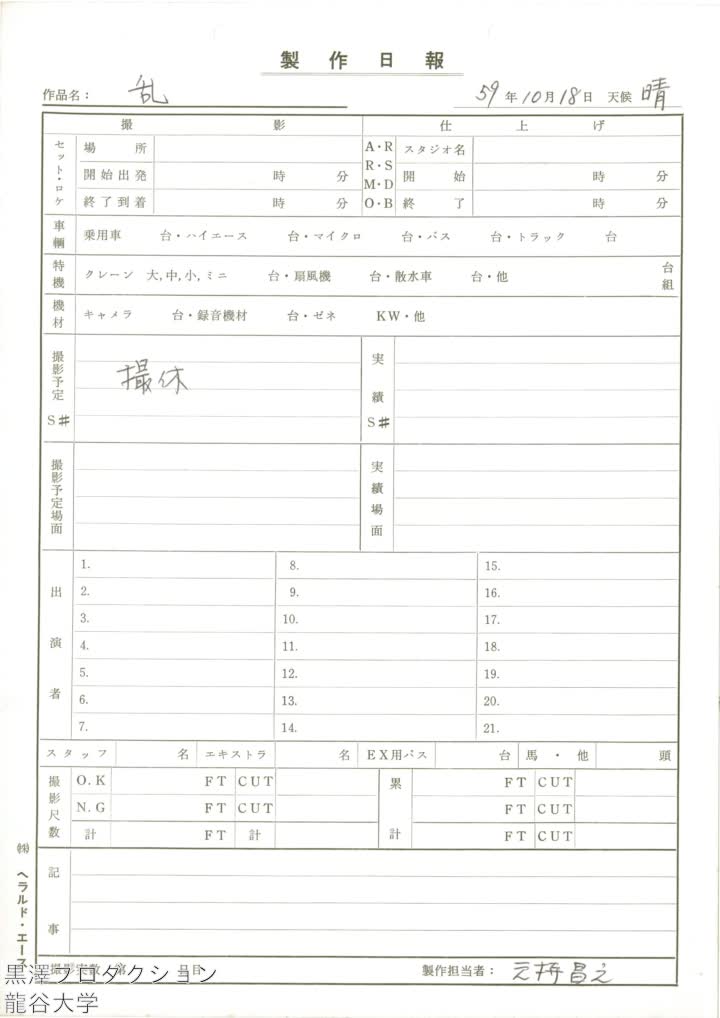 製作日報
作品名： 乱
59年10月18日 天候 晴
撮影 仕上げ
セット・ロケ 場所 A・R スタジオ名
開始出発 時 分 R・S 開始 時 分
M・D
終了到着 時 分 O・B 終了 時 分
車輌 乗用車 台・ハイエース 台・マイクロ 台・バス 台・トラック 台
特機 クレーン 大,中,小,ミニ 台・扇風機 台・散水車 台・他 台組
機材 キャメラ 台・録音機材 台・ゼネ KW・他
撮影予定 S# 撮休 実績 S#
撮影予定場面 実績場面
出演者
1. 8. 15.
2. 9. 16.
3. 10. 17.
4. 11. 18.
5. 12. 19.
6. 13. 20.
7. 14. 21.
スタッフ 名 エキストラ 名 EX用バス 台 馬・他 頭
撮影尺数 O.K FT CUT 累計 FT CUT
N.G FT CUT FT CUT
計 FT 計 FT CUT
記事
㈱ ヘラルド・エース
撮影実数 第 日目 製作担当者：
黒澤プロダクション
龍谷大学